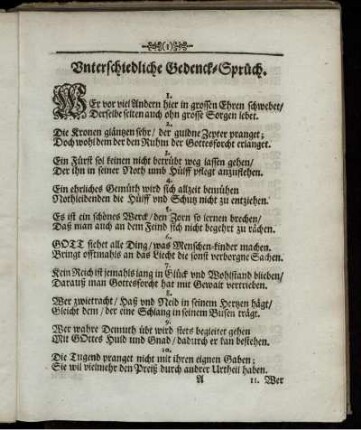 (1)
Vnterschiedliche Gedenck-Sprüch.
1.
WEr vor viel Andern hier in grossen Ehren schwebet/
Derselbe selten auch ohn grosse Sorgen lebet.
2.
Die Kronen gläntzen sehr / der guldne Zepter pranget;
Doch wohl dem der den Ruhm der Gottesforcht erlanget.
3.
Ein Fürst sol keinen nicht betrübt weg lassen gehen/
Der ihn in seiner Noth umb Hülff pflegt anzuflehen.
4.
Ein ehrliches Gemüth wird sich allzeit bemühen
Nothleidenden die Hülff und Schutz nicht zu entziehen.
5.
Es ist ein schönes Werck / den Zorn so lernen brechen/
Daß man auch an dem Feind sich nicht begehrt zu rächen.
6.
GOTT siehet alle Ding / was Menschen-kinder machen.
Bringt offtmahls an das Liecht die sonst verborgne Sachen.
7.
Kein Reich ist jemahls lang in Glück und Wohlstand blieben/
Darauß man Gottesforcht hat mit Gewalt vertrieben.
8.
Wer zwietracht / Haß und Neid in seinem Hertzen hägt/
Gleicht dem / der eine Schlang in seinem Busen trägt.
9.
Wer wahre Demuth übt wird stets begleitet gehen
Mit GOttes Huld und Gnad / dadurch er kan bestehen.
10.
Die Tugend pranget nicht mit ihren eignen Gaben;
Sie wil vielmehr den Preiß durch andrer Urtheil haben.
A 11. Wer